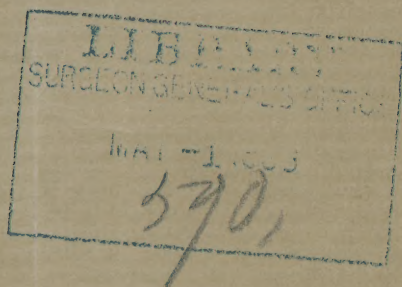 LIBRARY
SURGEON GENERAL'S OFFICE
MAY -1
590,